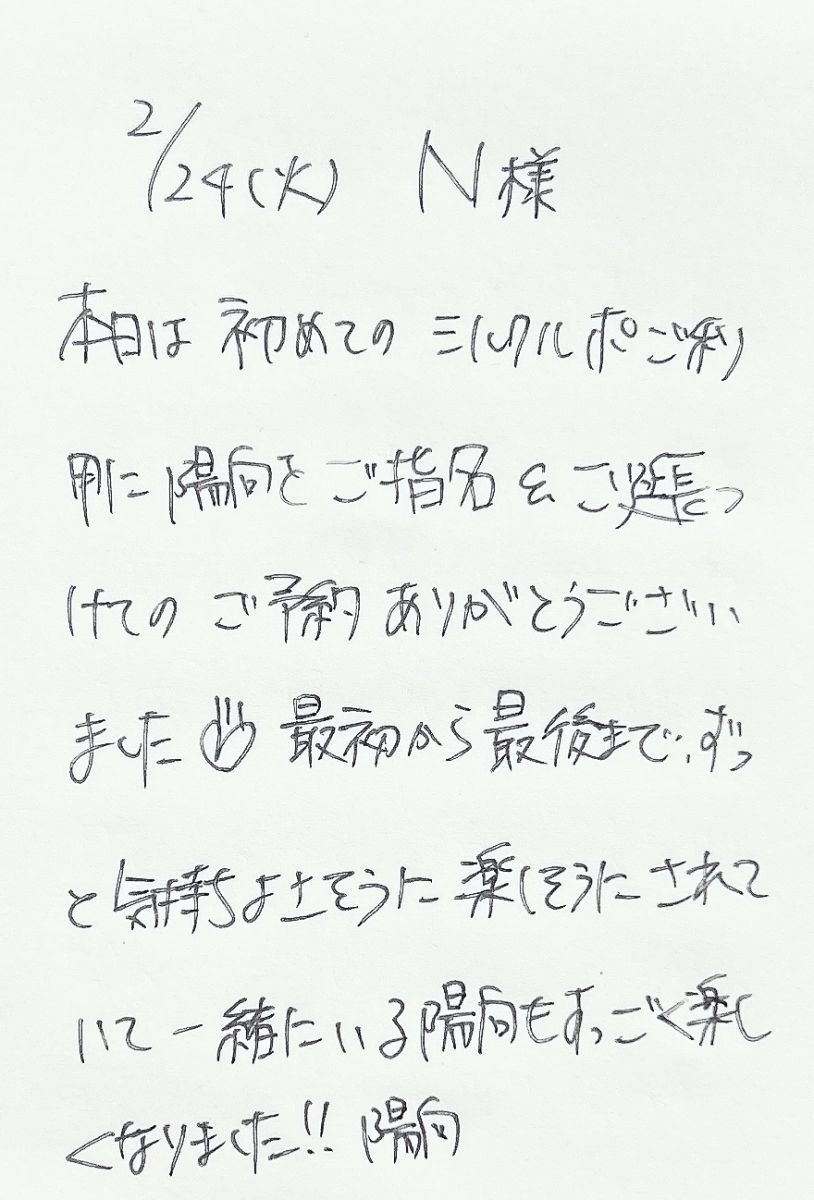 2/24(火) N様
本日は 初めての ミルクルポご利
用に陽向を ご指名 & ご延長っ
けての ご予約 ありがとうござい
ました 最初から最後まで、ずっ
と気持ちよさそうに 楽しそうに されて
いて 一緒にいる陽向もすっごく楽し
くなりました!! 陽向